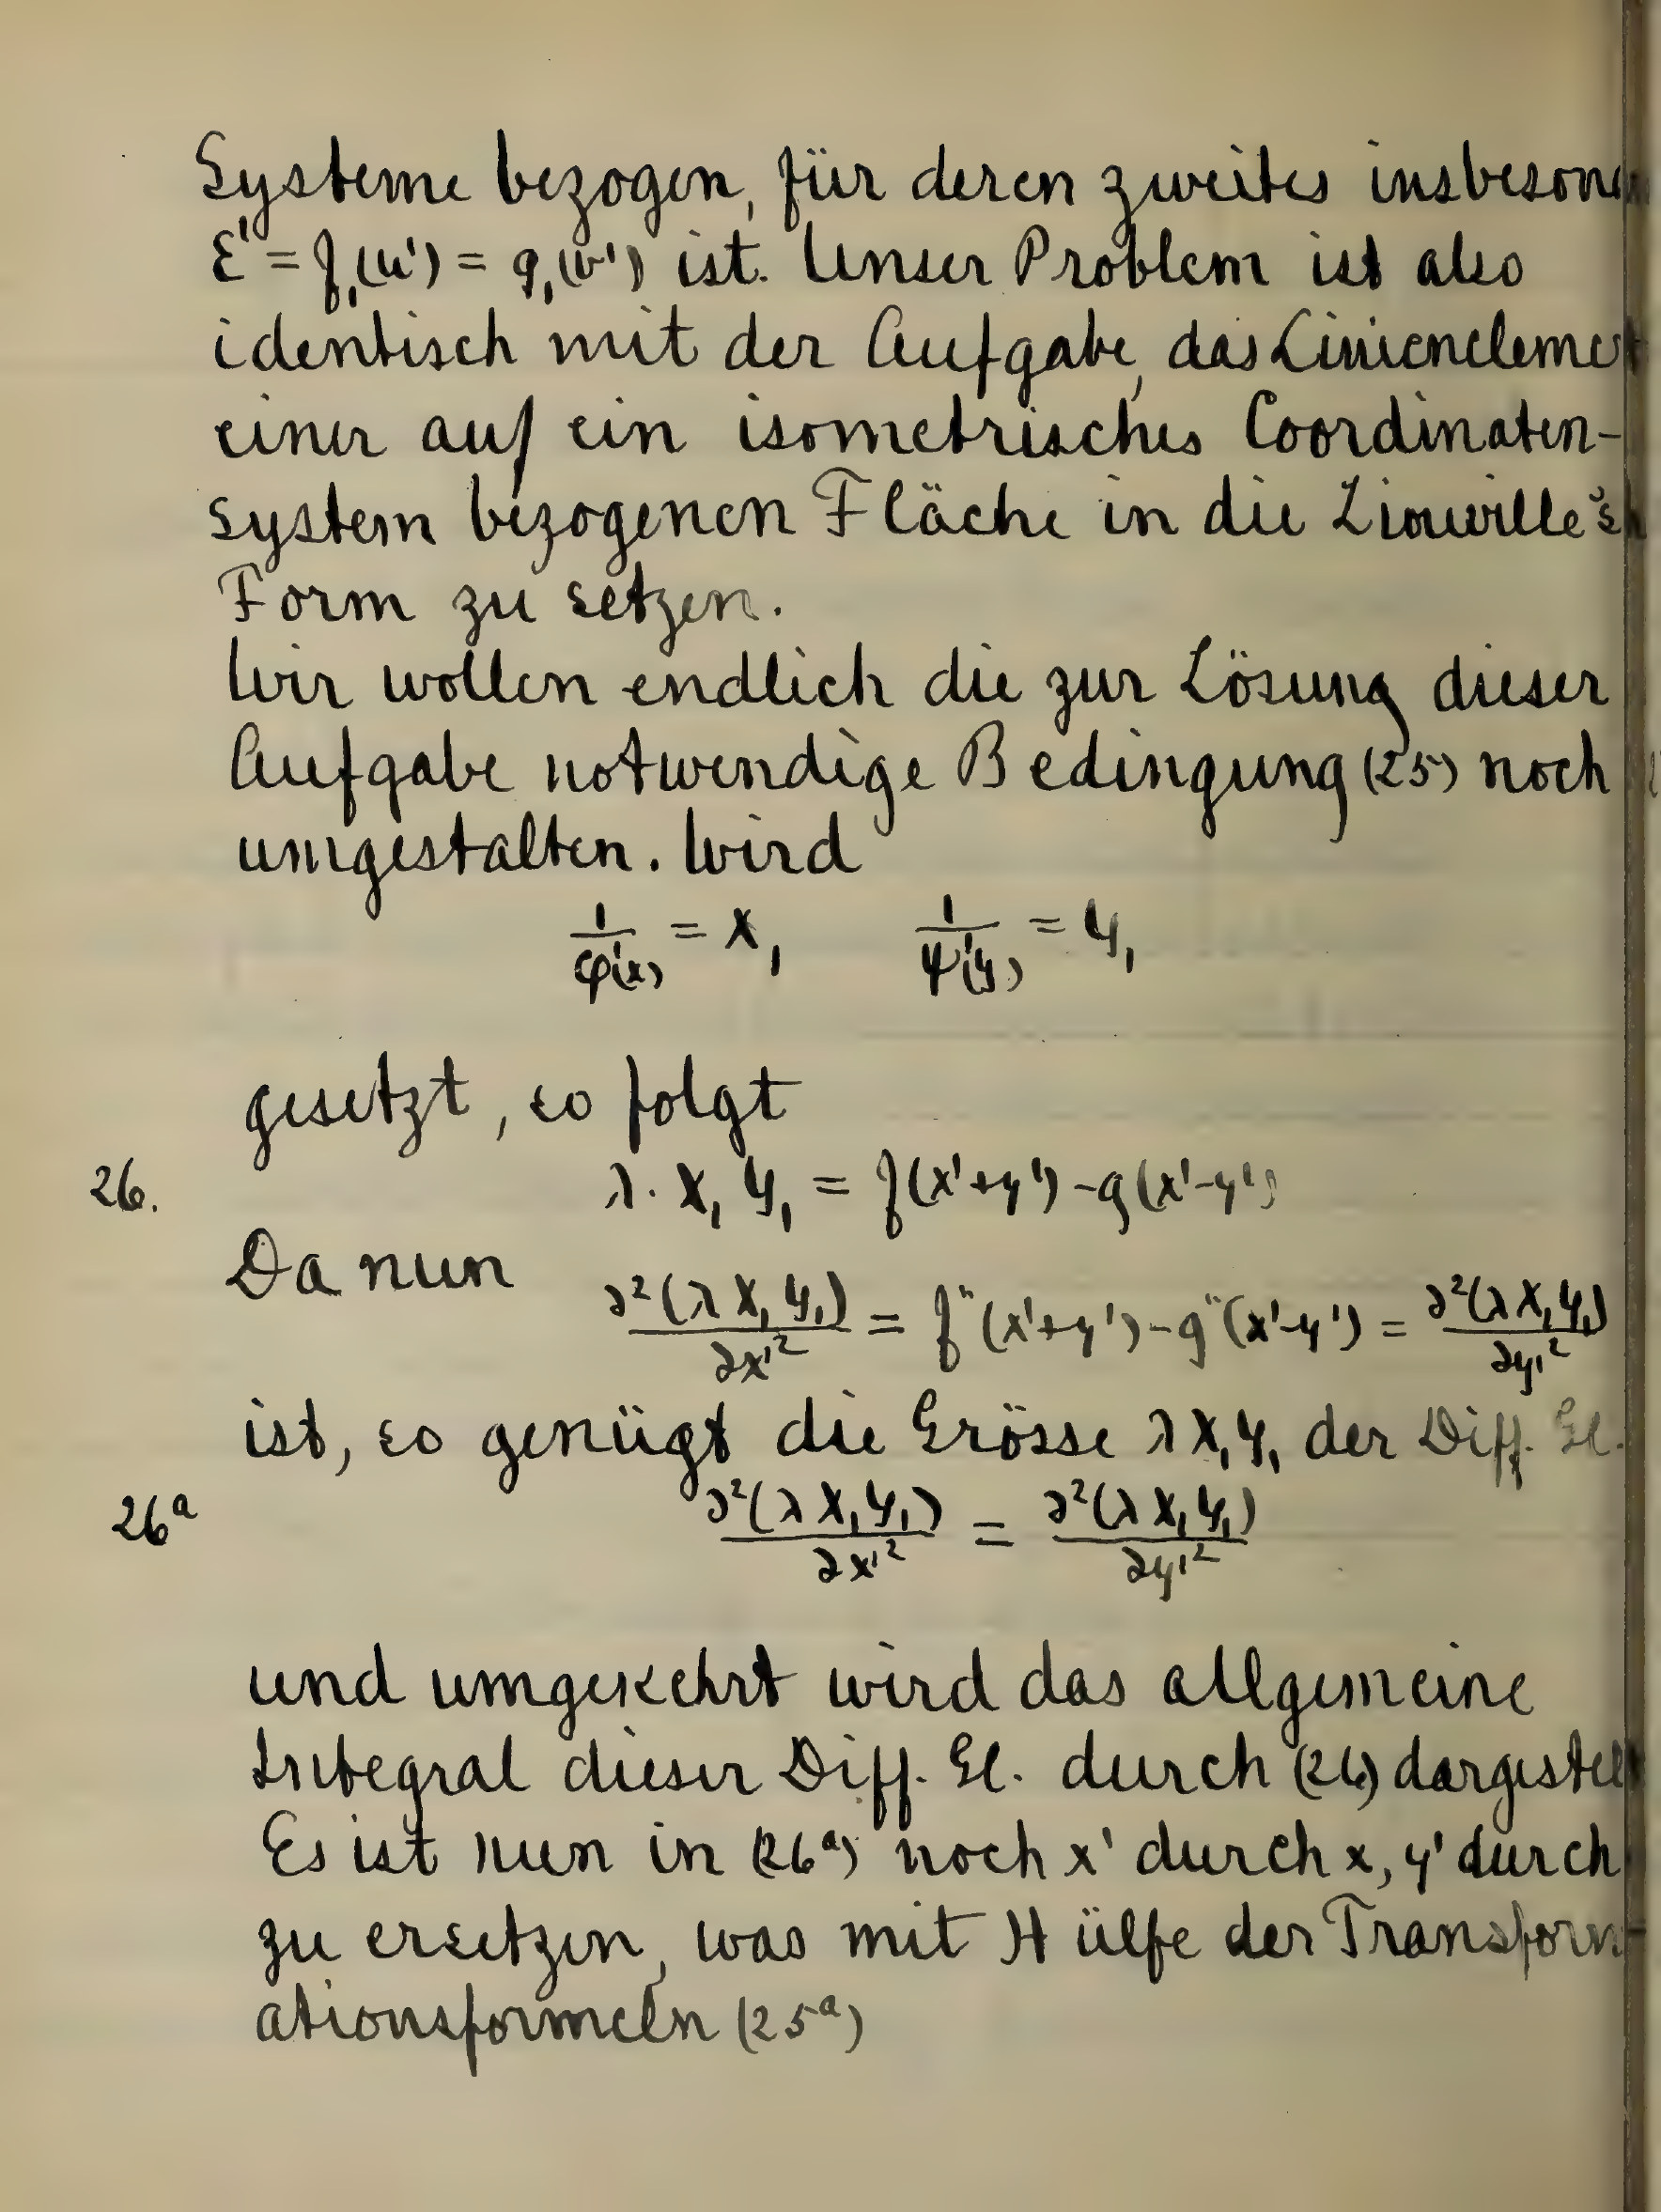 Systeme bezogen, für deren zweites insbeson
ε' = f₁(u') = g₁(v') ist. Unser Problem ist also
identisch mit der Aufgabe, das Linienelement
einer auf ein isometrisches Coordinaten-
system bezogenen Fläche in die Liouville'sch
Form zu setzen.
Wir wollen endlich die zur Lösung dieser
Aufgabe notwendige Bedingung (25) noch
umgestalten. Wird
1/φ'(x) = X₁ 1/ψ'(y) = Y₁
gesetzt, so folgt
26. λ. X₁ Y₁ = f(x'+y') - g(x'-y')
Da nun ∂²(λ X₁ Y₁)/∂x'² = f''(x'+y') - g''(x'-y') = ∂²(λ X₁ Y₁)/∂y'²
ist, so genügt die Grösse λ X₁ Y₁ der Diff. Gl.
26ᵃ ∂²(λ X₁ Y₁)/∂x'² = ∂²(λ X₁ Y₁)/∂y'²
und umgekehrt wird das allgemeine
Integral dieser Diff. Gl. durch (26) dargestell
Es ist nun in (26ᵃ) noch x' durch x, y' durch
zu ersetzen, was mit Hülfe der Transform-
ationsformeln (25ᵃ)